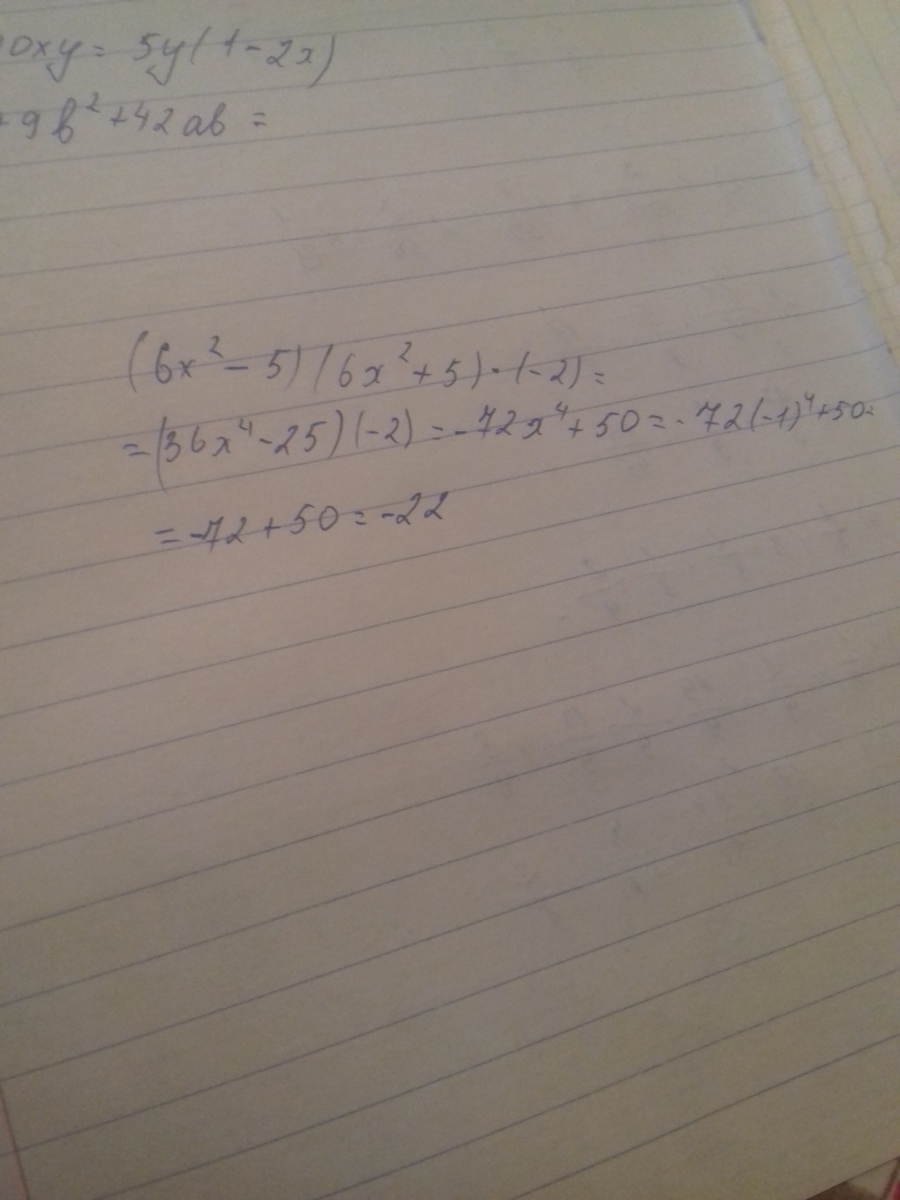 0xy = 5y(1-2x)
+ 9b² + 42ab =
(6x² - 5)(6x² + 5)·(-2) =
= (36x⁴ - 25)(-2) = -72x⁴ + 50 = -72(-1)⁴ + 50 =
= -72 + 50 = -22